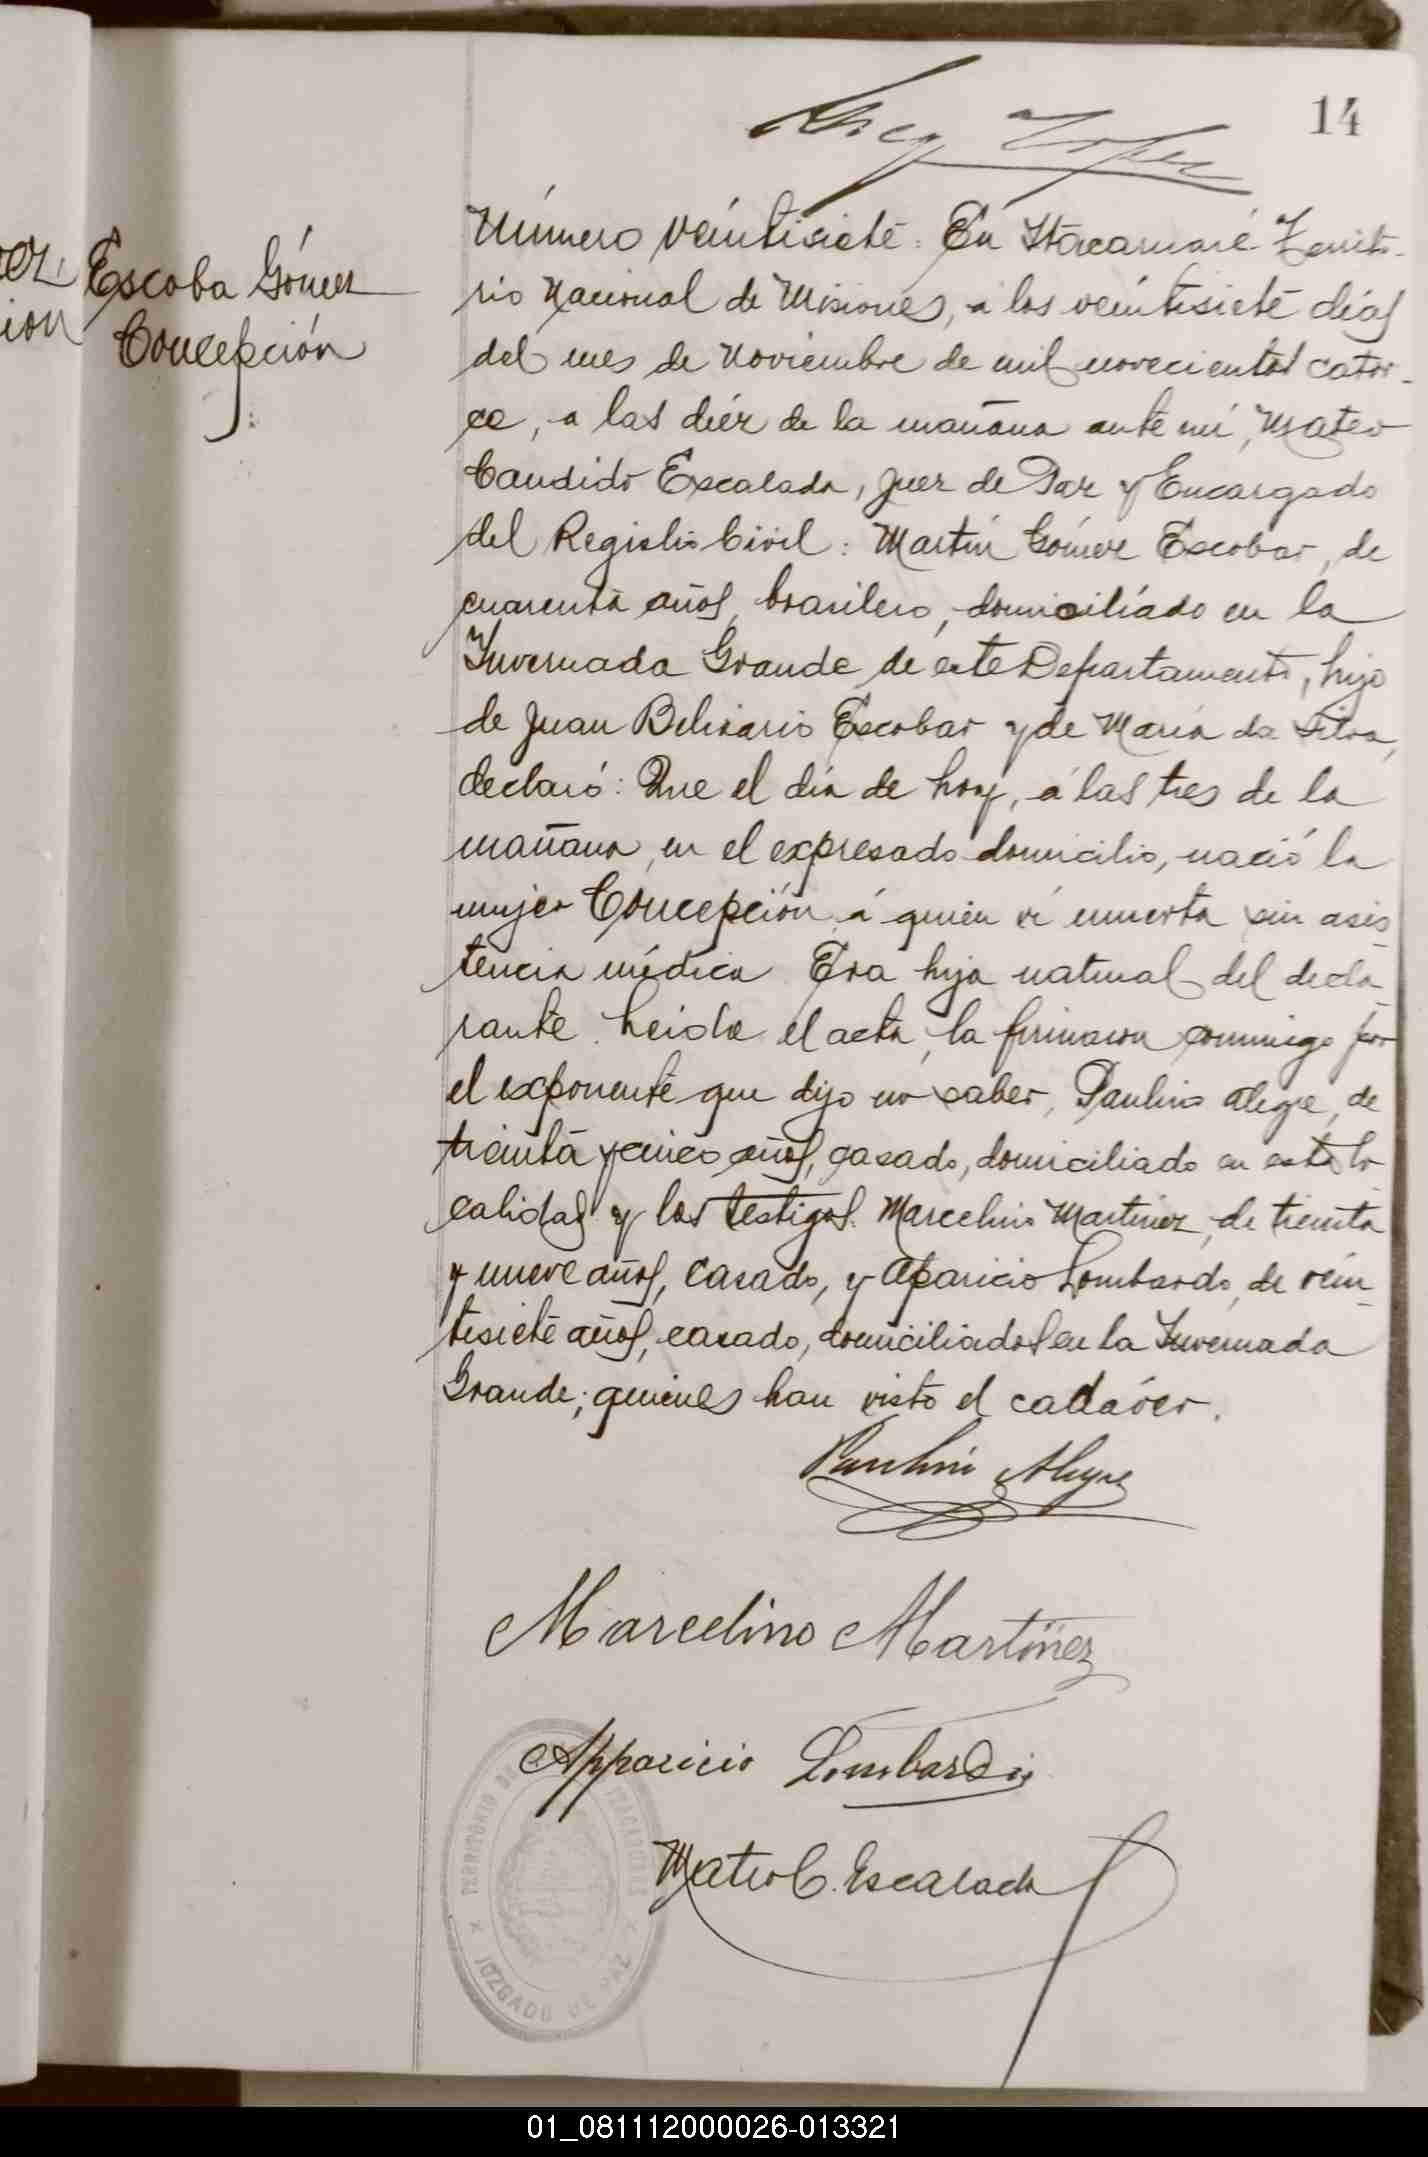 14
Escoba Gómez
Concepción
Número Veintisiete: En Itacaruaré Territo-
rio Nacional de Misiones, á los veintisiete días
del mes de Noviembre de mil novecientos cator-
ce, a las diéz de la mañana ante mí, Mateo
Candido Escalada, Juez de Paz y Encargado
del Registro Civil: Martín Gómez Escobar, de
cuarenta años, brasilero, domiciliado en la
Invernada Grande de este Departamento, hijo
de Juan Belisario Escobar y de María da Silva,
declaró: Que el día de hoy, á las tres de la
mañana, en el expresado domicilio, nació la
mujer Concepción, á quien ví muerta sin asis-
tencia médica. Era hija natural del decla-
rante. Leida el acta, la firmaron conmigo por
el exponente que dijo no saber, Paulino Alegre, de
treinta y cinco años, casado, domiciliado en esta lo-
calidad y los testigos: Marcelino Martinez, de treinta
y nueve años, casado, y Aparicio Lombardo, de vein-
tisiete años, casado, domiciliados en la Invernada
Grande; quienes han visto el cadáver.
Paulino Alegre
Marcelino Martinez
Apparicio Lombardi
Mateo C. Escalada
TERRITORIO DE ITACARUARE
JUZGADO DE PAZ
01_081112000026-013321